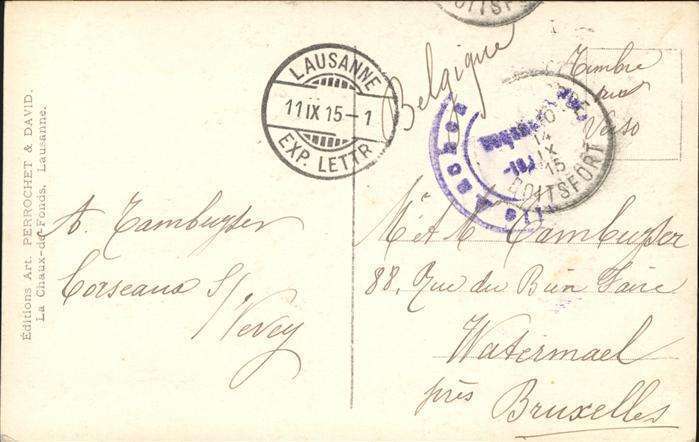 BOITSFORT
LAUSANNE
11 IX 15-1
EXP. LETTR.
Belgique
Timbre
au
Verso
14
IX
15
BOITSFORT
Éditions Art. PERROCHET & DAVID.
La Chaux-de-Fonds, Lausanne.
A. Tambuyser
Corseaux s/
Vevey
M. A. Tambuyser
88, Rue du Bien Faire
Watermael
près
Bruxelles